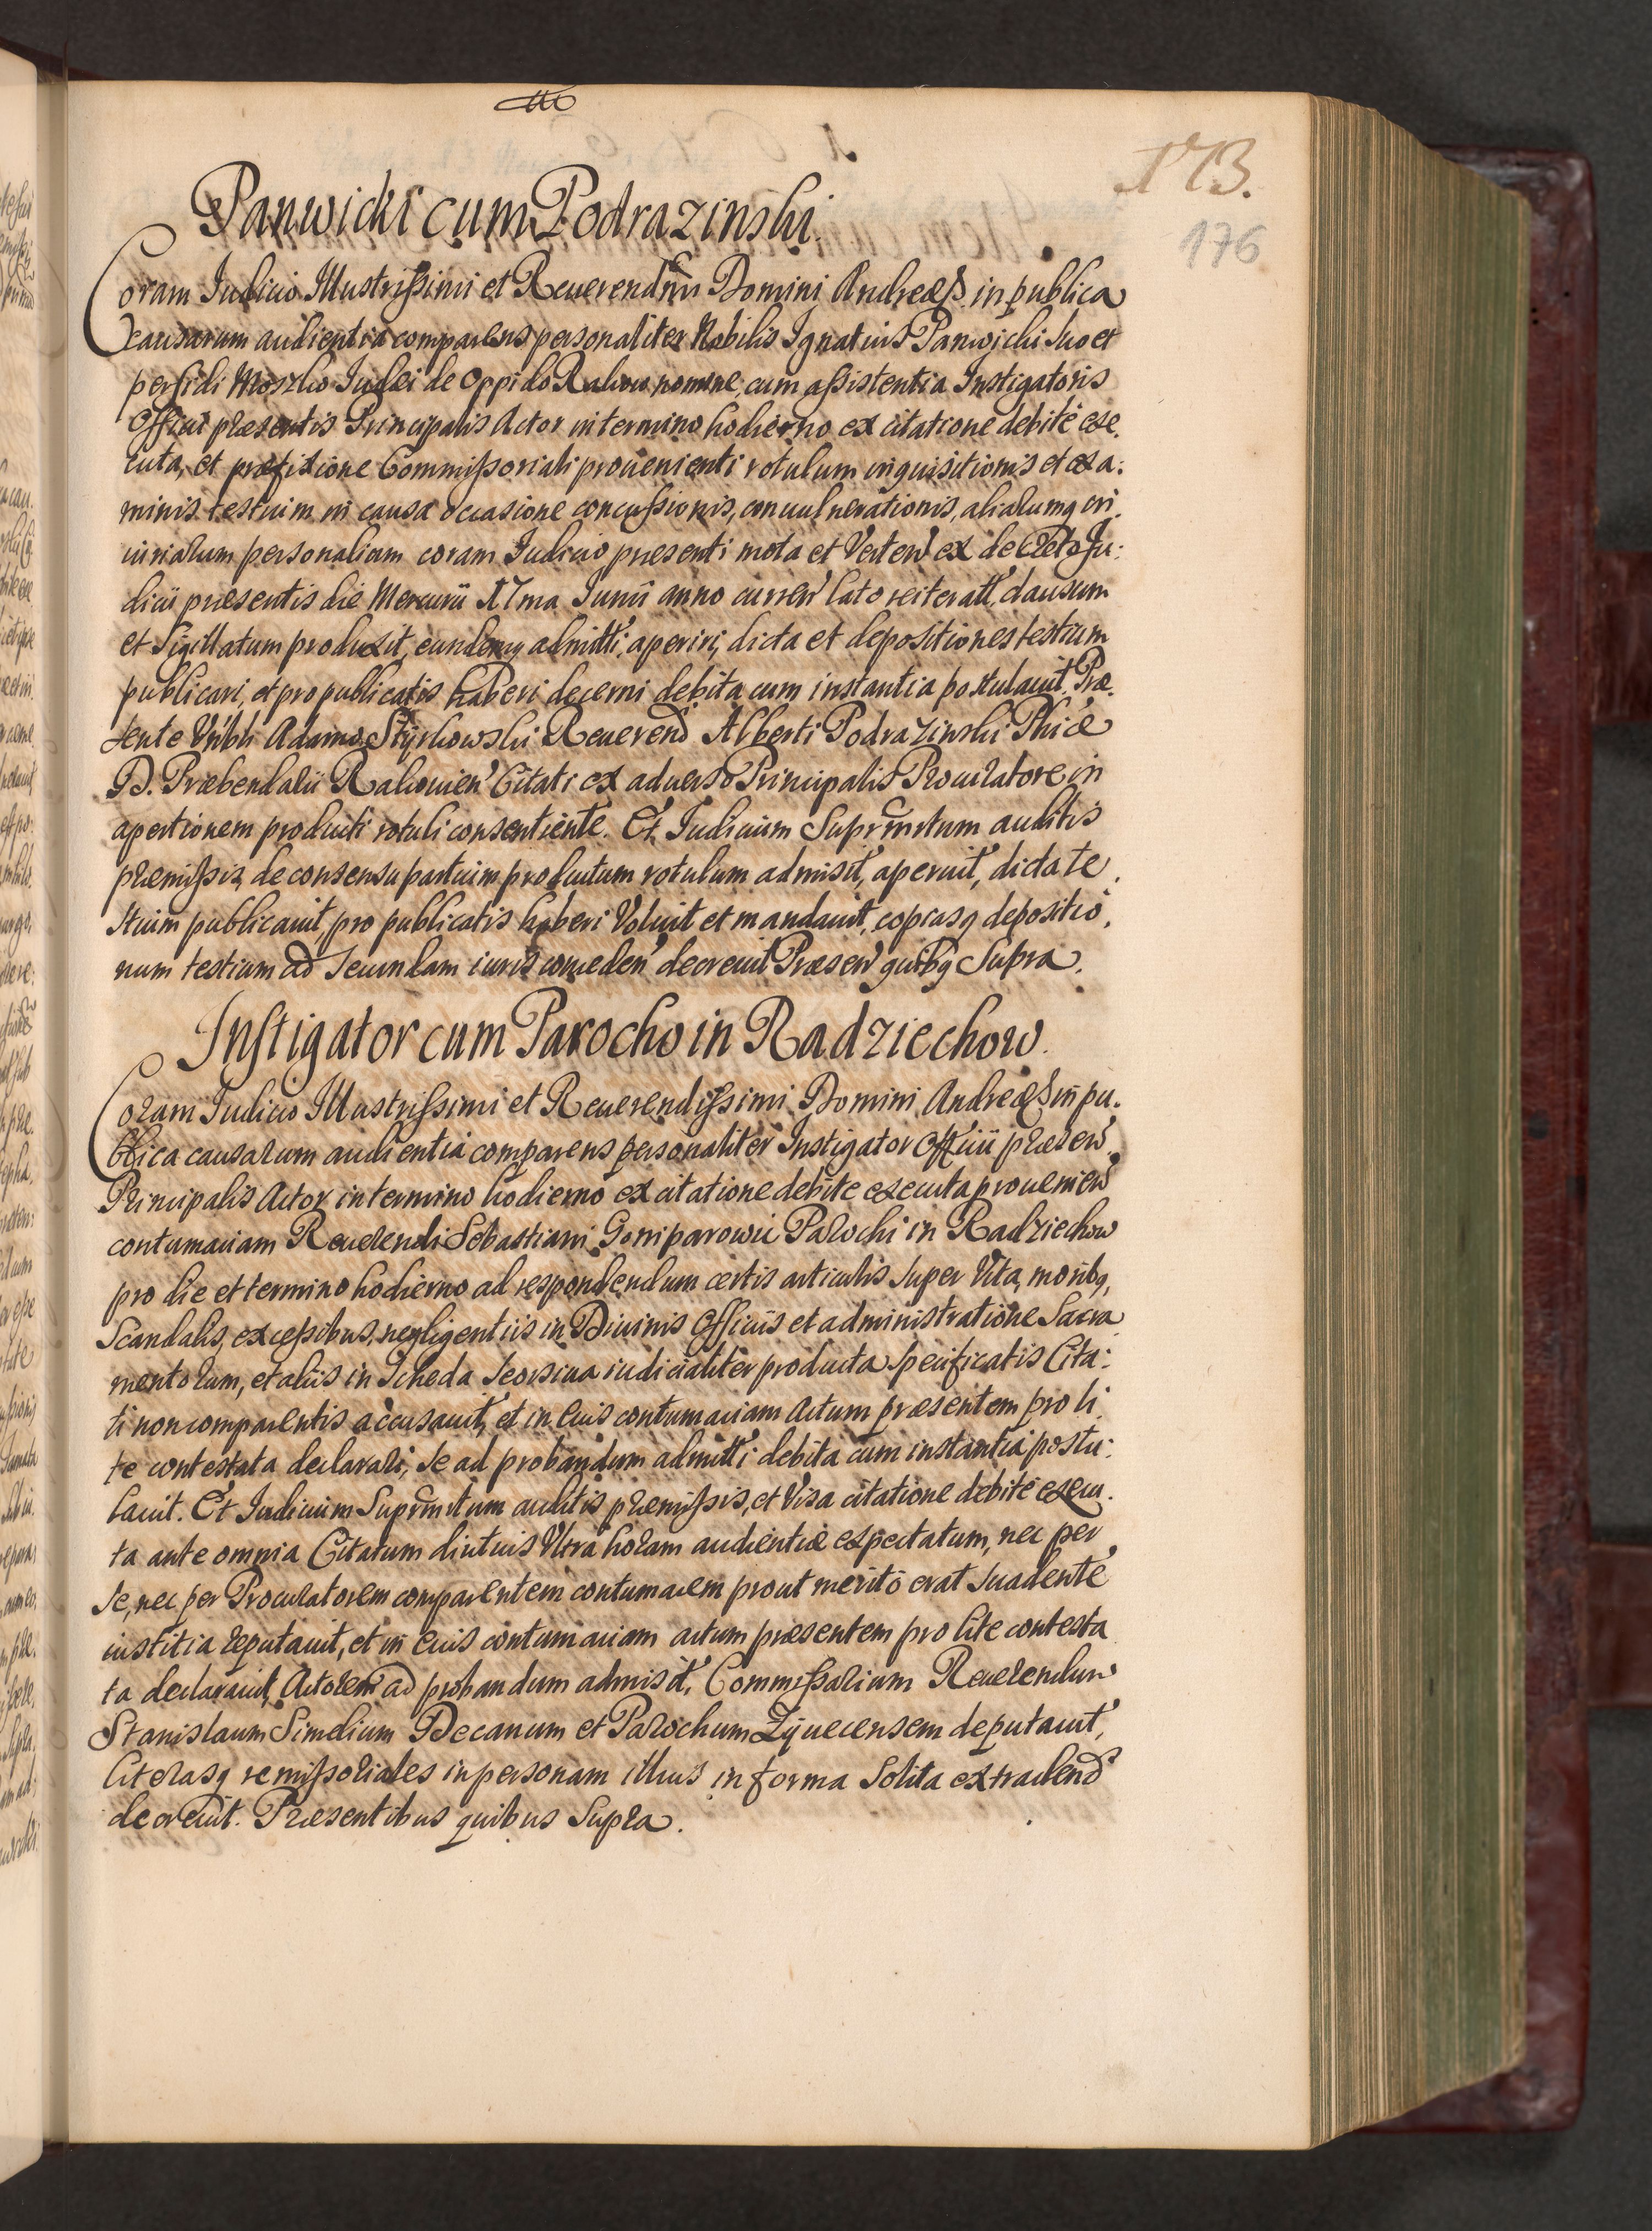 173.
176
Panwicki cum Podrazinski.
Coram Iudicio Illustrissimi et Reuerendmi Domini Andreæ ß. in publica
causarum audientia comparens personaliter Nobilis Ignatius Panwicki suo et
perfidi Moszko Iudei de Oppido Rakow nomine, cum assistentia Instigatoris
Officii præsentis Principalis Actor in termino hodierno ex citatione debitè exe.
cuta, et præfixione Commissoriali prouenienti rotulum inquisitionis et exa:
minis testium in causa occasione concussionis, conuulnerationis, aliarumq in.
iuriarum personalium coram Iudicio præsenti mota et Verten ex decreto Iu:
dicii præsentis die Mercurii 17ma Iunii anno curren lato reiteratt, clausum
et Sigillatum produxit, eundemq admitti, aperiri, dicta et depositiones testium
publicari, et pro publicatis haberi decerni debita cum instantia postulauit. Præ.
sente Adamo Styrkowski Reuerend Alberti Podrazinski Phiæ
D. Præbendarii Rakouien Citati ex aduerso Principalis Procuratore in
apertionem producti rotuli consentiente. Et Iudicium Suprmtum auditis
præmissis, de consensu partium productum rotulum admisit, aperuit, dicta te.
stium publicauit, pro publicatis haberi Voluit et mandauit, copiasq depositio.
num testium ad Secundam iuris conceden decreuit Præsen quibq Supra.
Instigator cum Parocho in Radziechow.
Coram Iudicio Illustrissimi et Reuerendissimi Domini Andreæ ß in pu.
blica causarum audientia comparens personaliter Instigator Officii præsen
Principalis Actor in termino hodierno ex citatione debite executa prouenien
contumaciam Reuerendi Sebastiani Parochi in Radziechow
pro die et termino hodierno ad respondendum certis articulis super Vita, moribq,
Scandalis, excessibus, negligentiis in Diuinis Officiis et administratione Sacra
mentorum, et aliis in Scheda Seorsiua iudicialiter producta Specificatis Cita:
ti non comparentis accusauit, et in eius contumaciam Actum præsentem pro li
te contestata declarari, Se ad probandum admitti debita cum instantia postu:
lauit. Et Iudicium Suprmtum auditis præmissis, et Visa citatione debitè execu.
ta ante omnia Citatum diutius Vltra horam audientiæ expectatum, nec per
Se, nec per Procuratorem comparentem contumacem prout meritò erat Suadente
iustitia reputauit, et in eius contumaciam actum præsentem pro lite contesta
ta declarauit, Actorem ad probandum admisit, Commissarium Reuerendum
Stanislaum Simelium Decanum et Parochum Zyuecensem deputauit,
Literasq remissoriales in personam illius in forma Solita extradend
decreuit. Præsentibus quibus Supra.